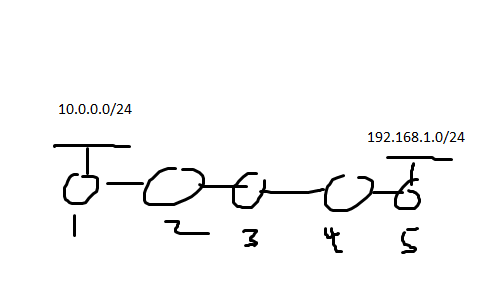 10.0.0.0/24
192.168.1.0/24
1 2 3 4 5